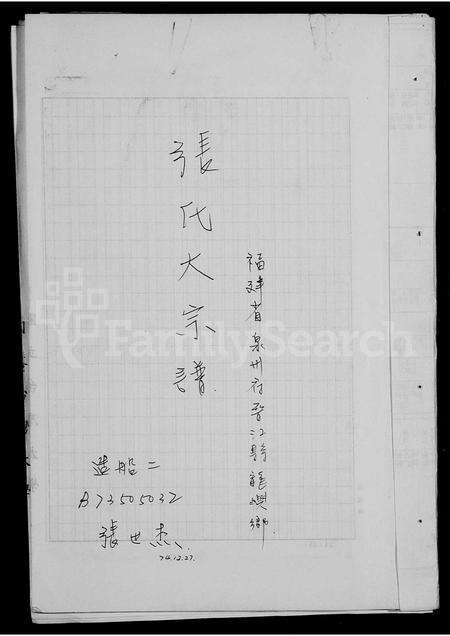 張氏大宗譜
福建省泉州府晋江縣龍興鄉
造船二
B73505032
張世杰
74.12.27.
FamilySearch